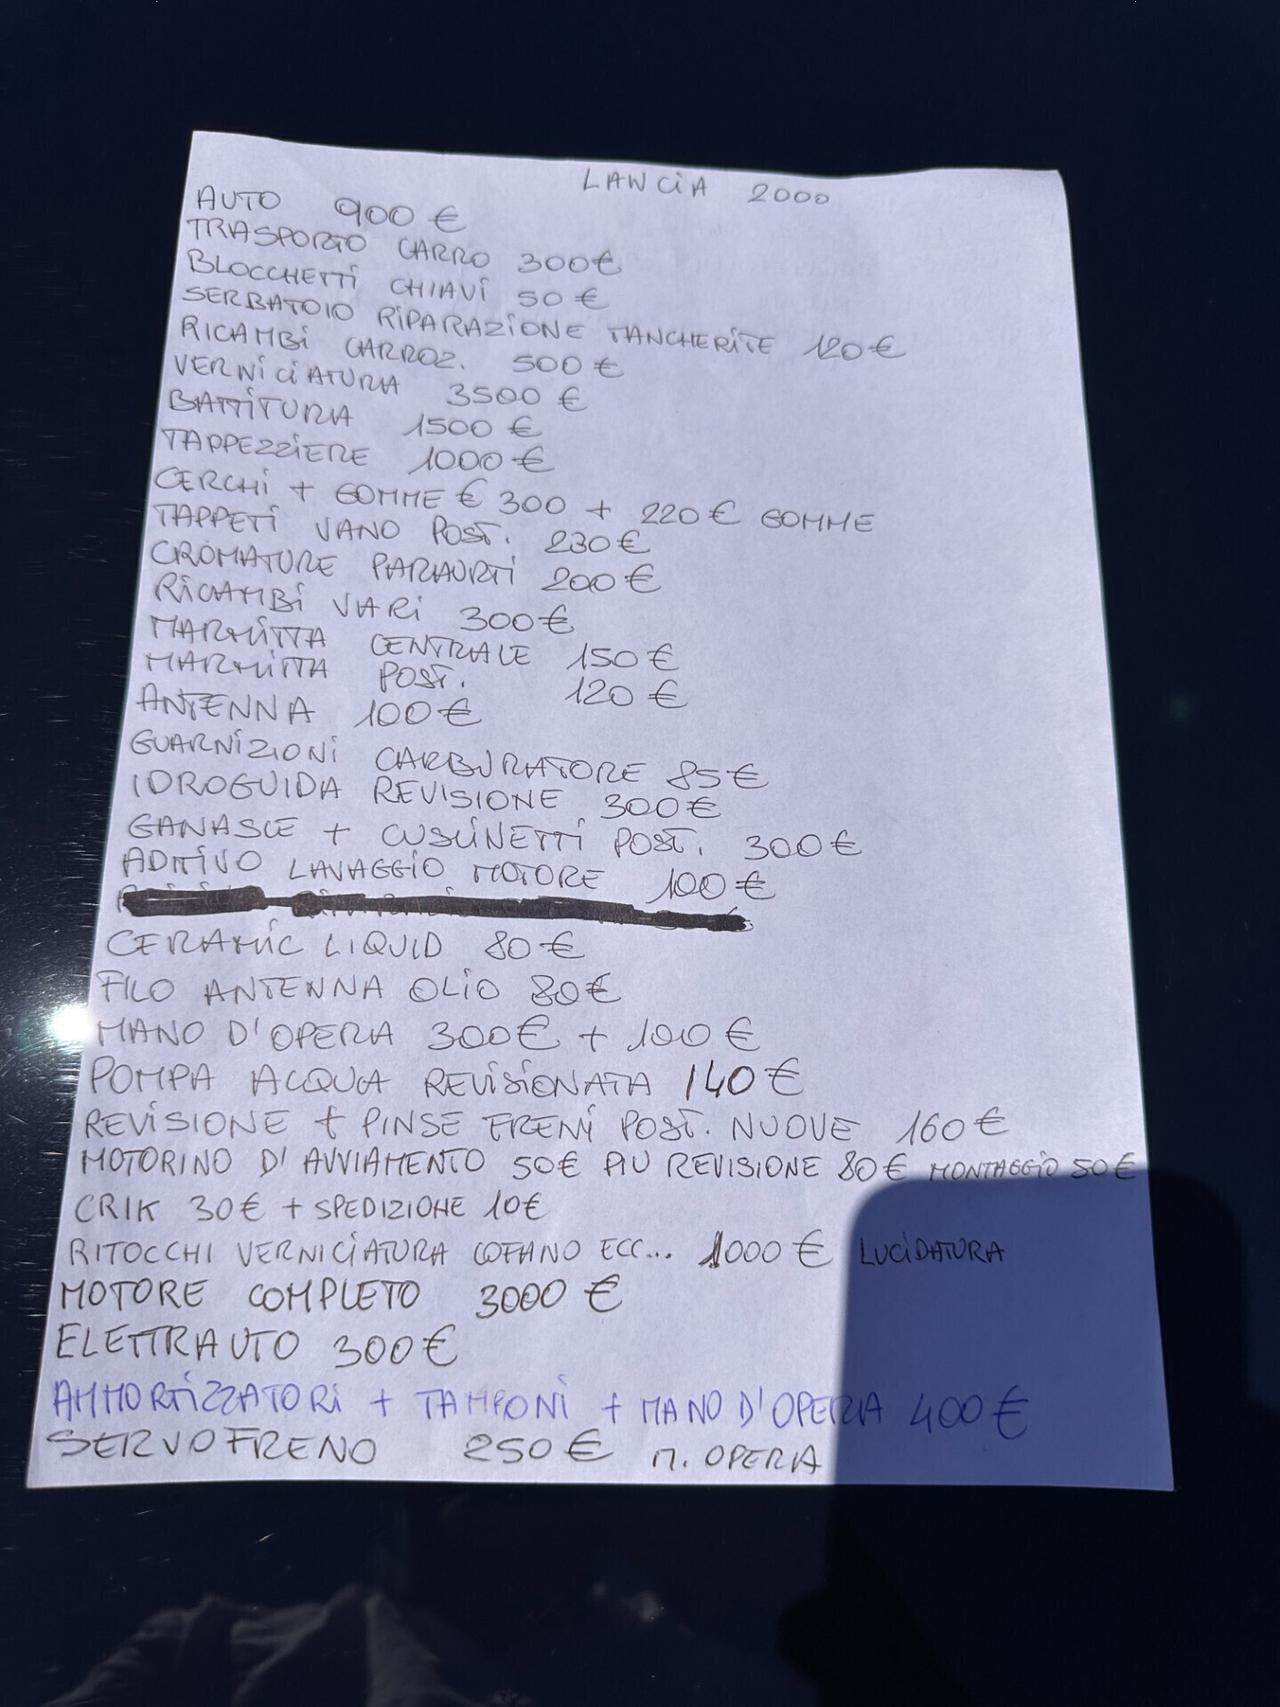 LANCIA 2000
AUTO 900 €
TRASPORTO CARRO 300€
BLOCCHETTI CHIAVI 50 €
SERBATOIO RIPARAZIONE TANCHERITE 120 €
RICAMBI CARROZ. 500 €
VERNICIATURA 3500 €
BATTITURA 1500 €
TAPPEZZIERE 1000 €
CERCHI + GOMME € 300 + 220 € GOMME
TAPPETI VANO POST. 230 €
CROMATURE PARAURTI 200€
RICAMBI VARI 300€
MARMITTA CENTRALE 150 €
MARMITTA POST. 120 €
ANTENNA 100 €
GUARNIZIONI CARBURATORE 85€
IDROGUIDA REVISIONE 300€
GANASCE + CUSCINETTI POST. 300€
ADITIVO LAVAGGIO MOTORE 100€
CERAMIC LIQUID 80 €
FILO ANTENNA OLIO 80€
MANO D'OPERA 300€ + 100 €
POMPA ACQUA REVISIONATA 140€
REVISIONE + PINSE FRENI POST. NUOVE 160€
MOTORINO D'AVVIAMENTO 50€ PIU REVISIONE 80€ MONTAGGIO 50€
CRIK 30€ + SPEDIZIONE 10€
RITOCCHI VERNICIATURA COFANO ECC... 1000 € LUCIDATURA
MOTORE COMPLETO 3000 €
ELETTRAUTO 300€
AMMORTIZZATORI + TAMPONI + MANO D'OPERA 400€
SERVOFRENO 250€ M. OPERA